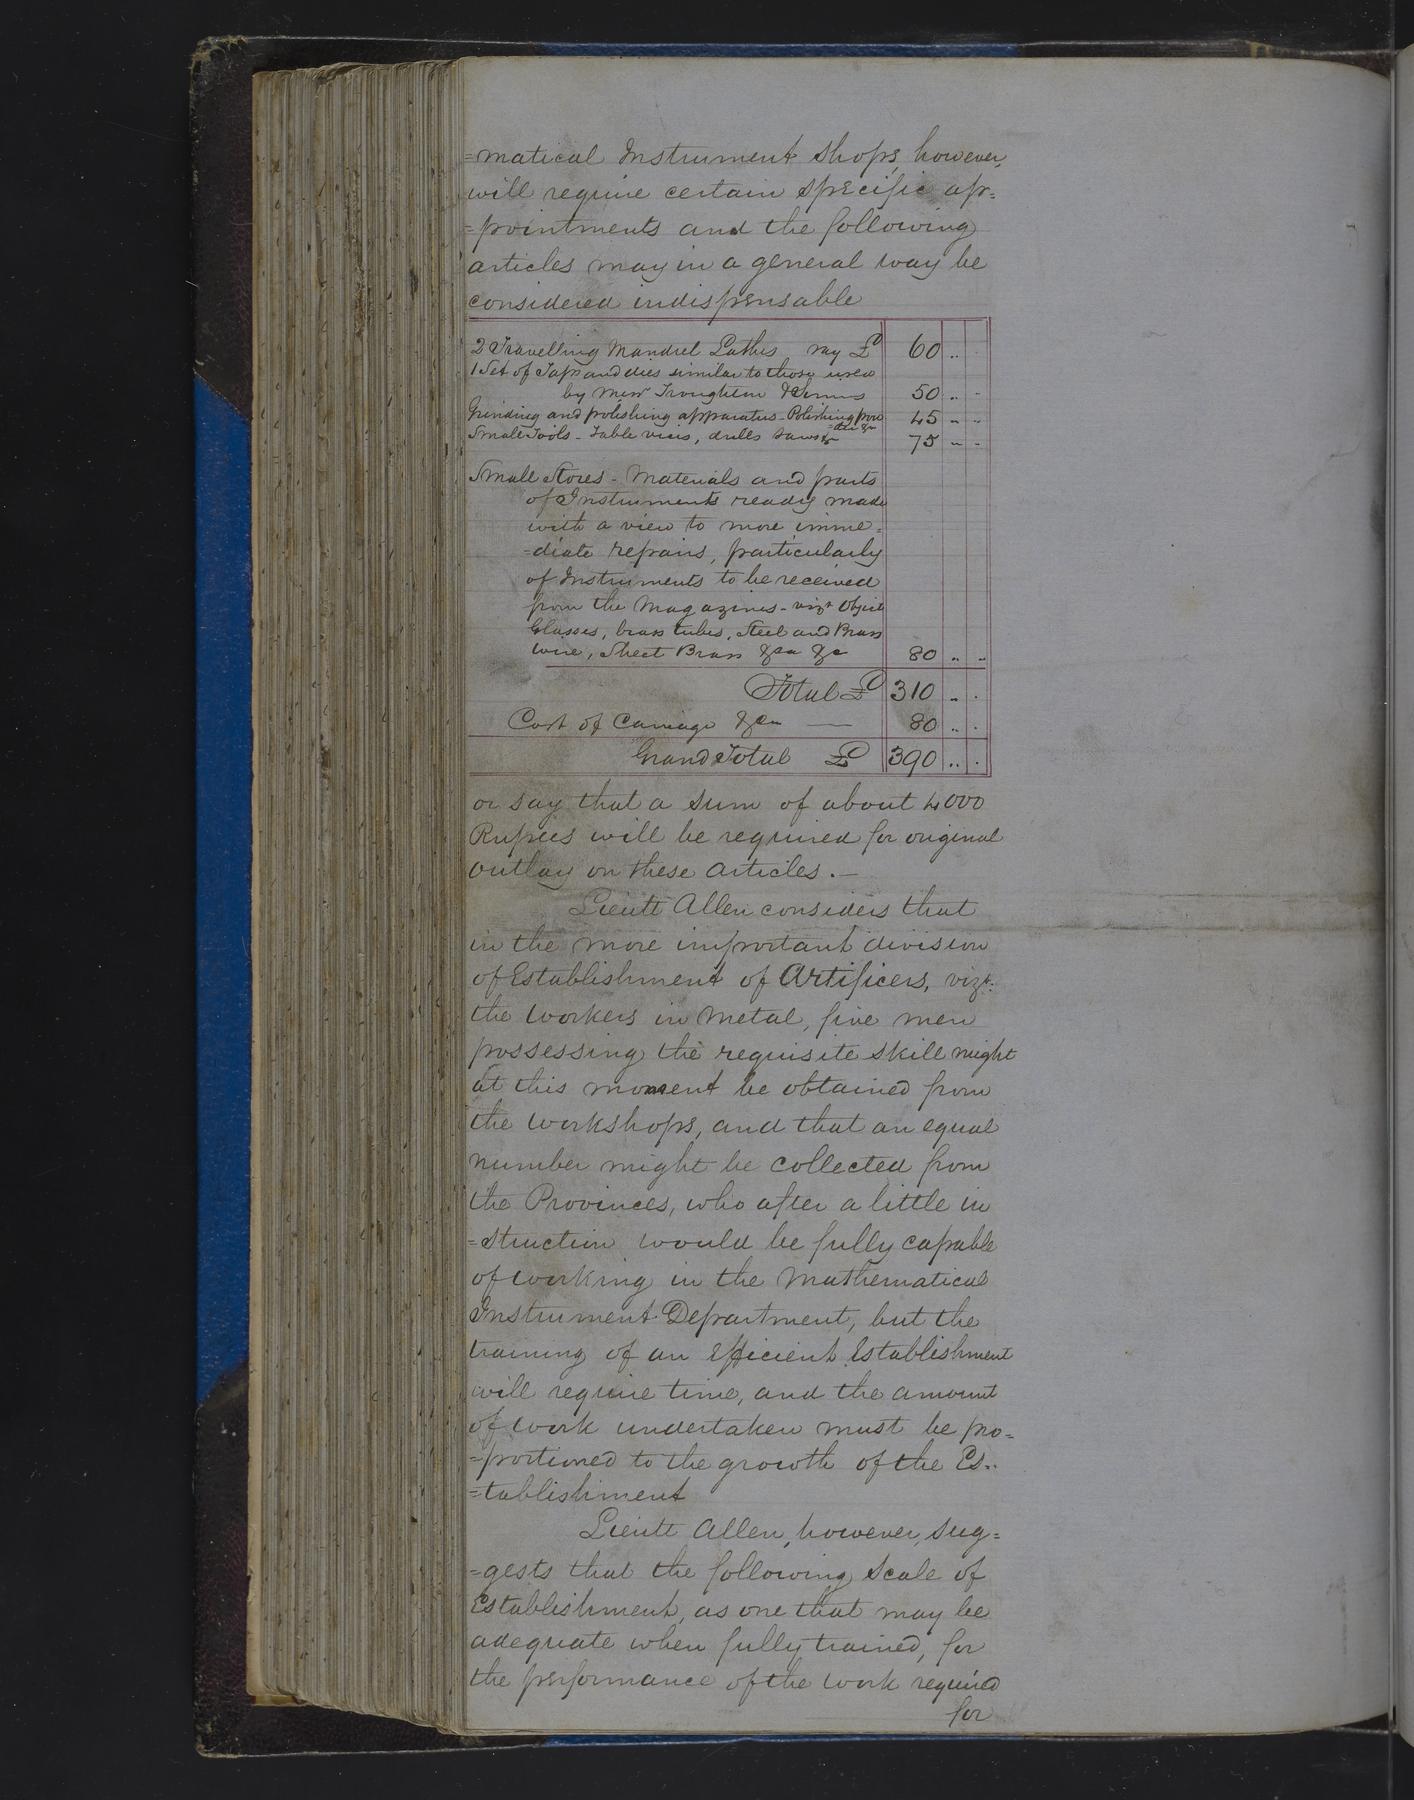 =matical Instrument shops, however,
will require certain specific ap=
=pointments and the following
articles may in a general way be
considered indispensable
2 Travelling Mandrel Lathes say £ 60 .. .
1 Set of Taps and dies similar to those used
by Messrs Troughton & Simms 50 .. ..
Grinding and polishing apparatus - Polishing pow 45 .. ..
=der &c
Small Tools - Table vices, drills saws &c 75 .. ..
Small Stores - Materials and parts
of Instruments ready made
with a view to more imme=
=diate repairs, particularly
of Instruments to be received
from the Magazines - vizt Object
Glasses, brass tubes, Steel and Brass
wire, Sheet Brass &ca &c 80 .. ..
Total £ 310 .. .
Cost of Carriage &ca — 80 .. .
Grand Total £ 390 .. .
or say that a sum of about 4000
Rupees will be required for original
outlay on these articles. —
Lieutt Allen considers that
in the more important division
of Establishment of Artificers, vizt.
the workers in Metal, five men
possessing the requisite skill might
at this moment be obtained from
the workshops, and that an equal
number might be collected from
the Provinces, who after a little in
=struction would be fully capable
of working in the Mathematical
Instrument Department, but the
training of an efficient Establishment
will require time, and the amount
of work undertaken must be pro=
=portioned to the growth of the Es..
=tablishment
Lieutt Allen, however, sug=
=gests that the following scale of
Establishment, as one that may be
adequate when fully trained, for
the performance of the work required
for